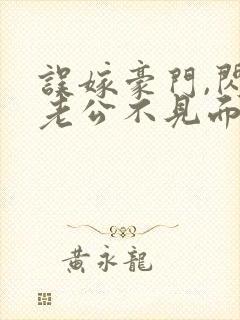 誤嫁豪門,閃
老公不見面
黃永龍